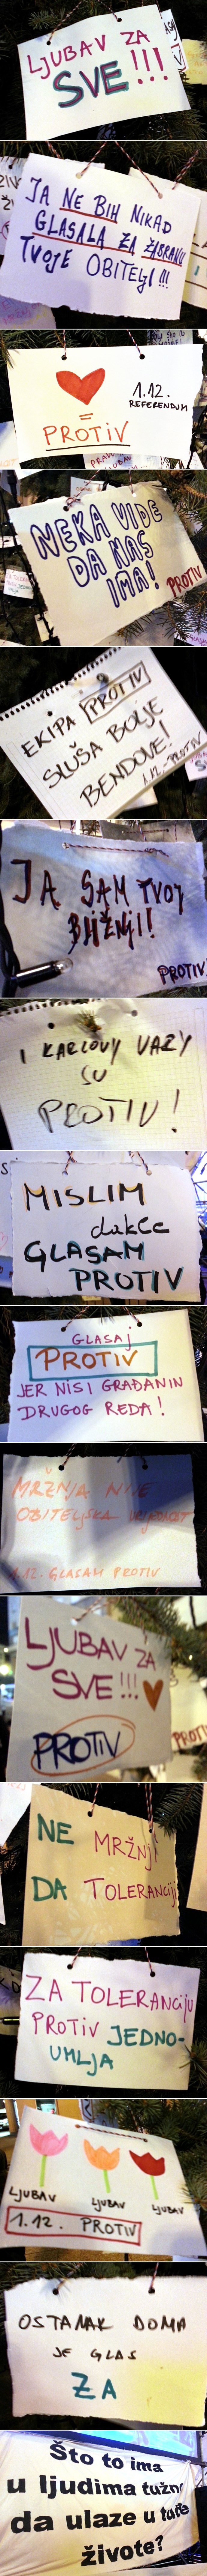 LJUBAV ZA
SVE!!!
JA NE BIH NIKAD
GLASALA ZA ZABRANU
TVOJE OBITELJI!!!
1.12.
REFERENDUM
=
PROTIV
NEKA VIDE
DA NAS
IMA!
PROTIV
EKIPA PROTIV
SLUŠA BOLJE
BENDOVE!
1.12.-PROTIV
JA SAM TVOJ
BLIŽNJI!
PROTIV
I KARLOVY VARY
SU
PROTIV!
MISLIM
dakle
GLASAM
PROTIV
GLASAJ
PROTIV
JER NISI GRAĐANIN
DRUGOG REDA!
MRŽNJA NIJE
OBITELJSKA VRIJEDNOST
1.12. GLASAM PROTIV
LJUBAV ZA
SVE!!!
PROTIV
PROTI
NE MRŽNJI
DA TOLERANCIJI
ZA TOLERANCIJU
PROTIV JEDNO-
UMLJA
LJUBAV LJUBAV LJUBAV
1.12. PROTIV
OSTANAK DOMA
JE GLAS
ZA
Što to ima
u ljudima tužno
da ulaze u tuđe
živote?